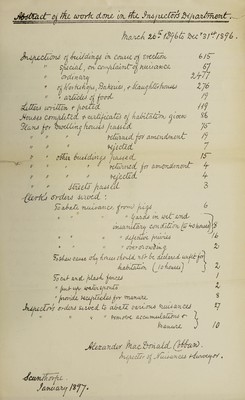 Abstract of the work done in the Inspector's Department.
March 26th 1896 to Dec 31st 1896.
Inspections of buildings in course of erection 615
" special, on complaint of nuisance 67
" ordinary 2477
" of Workshops, Bakeries, & Slaughterhouses 276
" " articles of food 19
Letters written & posted 119
Houses completed & certificates of habitation given 86
Plans for Dwelling houses passed 75
" " " " returned for amendment 19
" " " " rejected 7
" " other buildings passed 15
" " " " returned for amendment 4
" " " " rejected 4
" " streets passed 3
Clerk's orders served:
To abate nuisance from pigs 6
" " " " Yards in wet and
insanitary condition (to 40 houses) 8
" " " " defective privies 14
" " " " overcrowding 2
To show cause why houses should not be declared unfit for
habitation (10 houses) 2
To cut and plash fences 1
" put up waterspouts 2
" provide receptacles for manure 8
Inspector's orders served to abate various nuisances 27
" " " " remove accumulations of
manure 10
Alexander MacDonald Cobban.
Inspector of Nuisances & Surveyor.
Scunthorpe
January 1897.